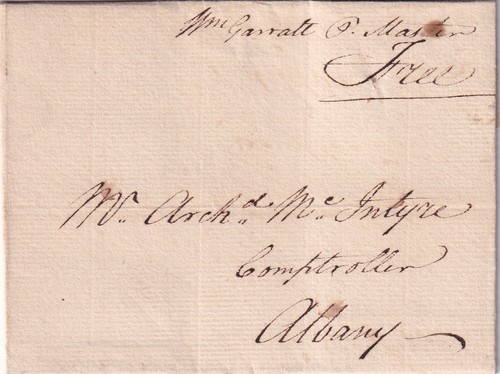 Wm Garratt P. Master
Free
Mr. Archd. Mc. Intyre
Comptroller
Albany